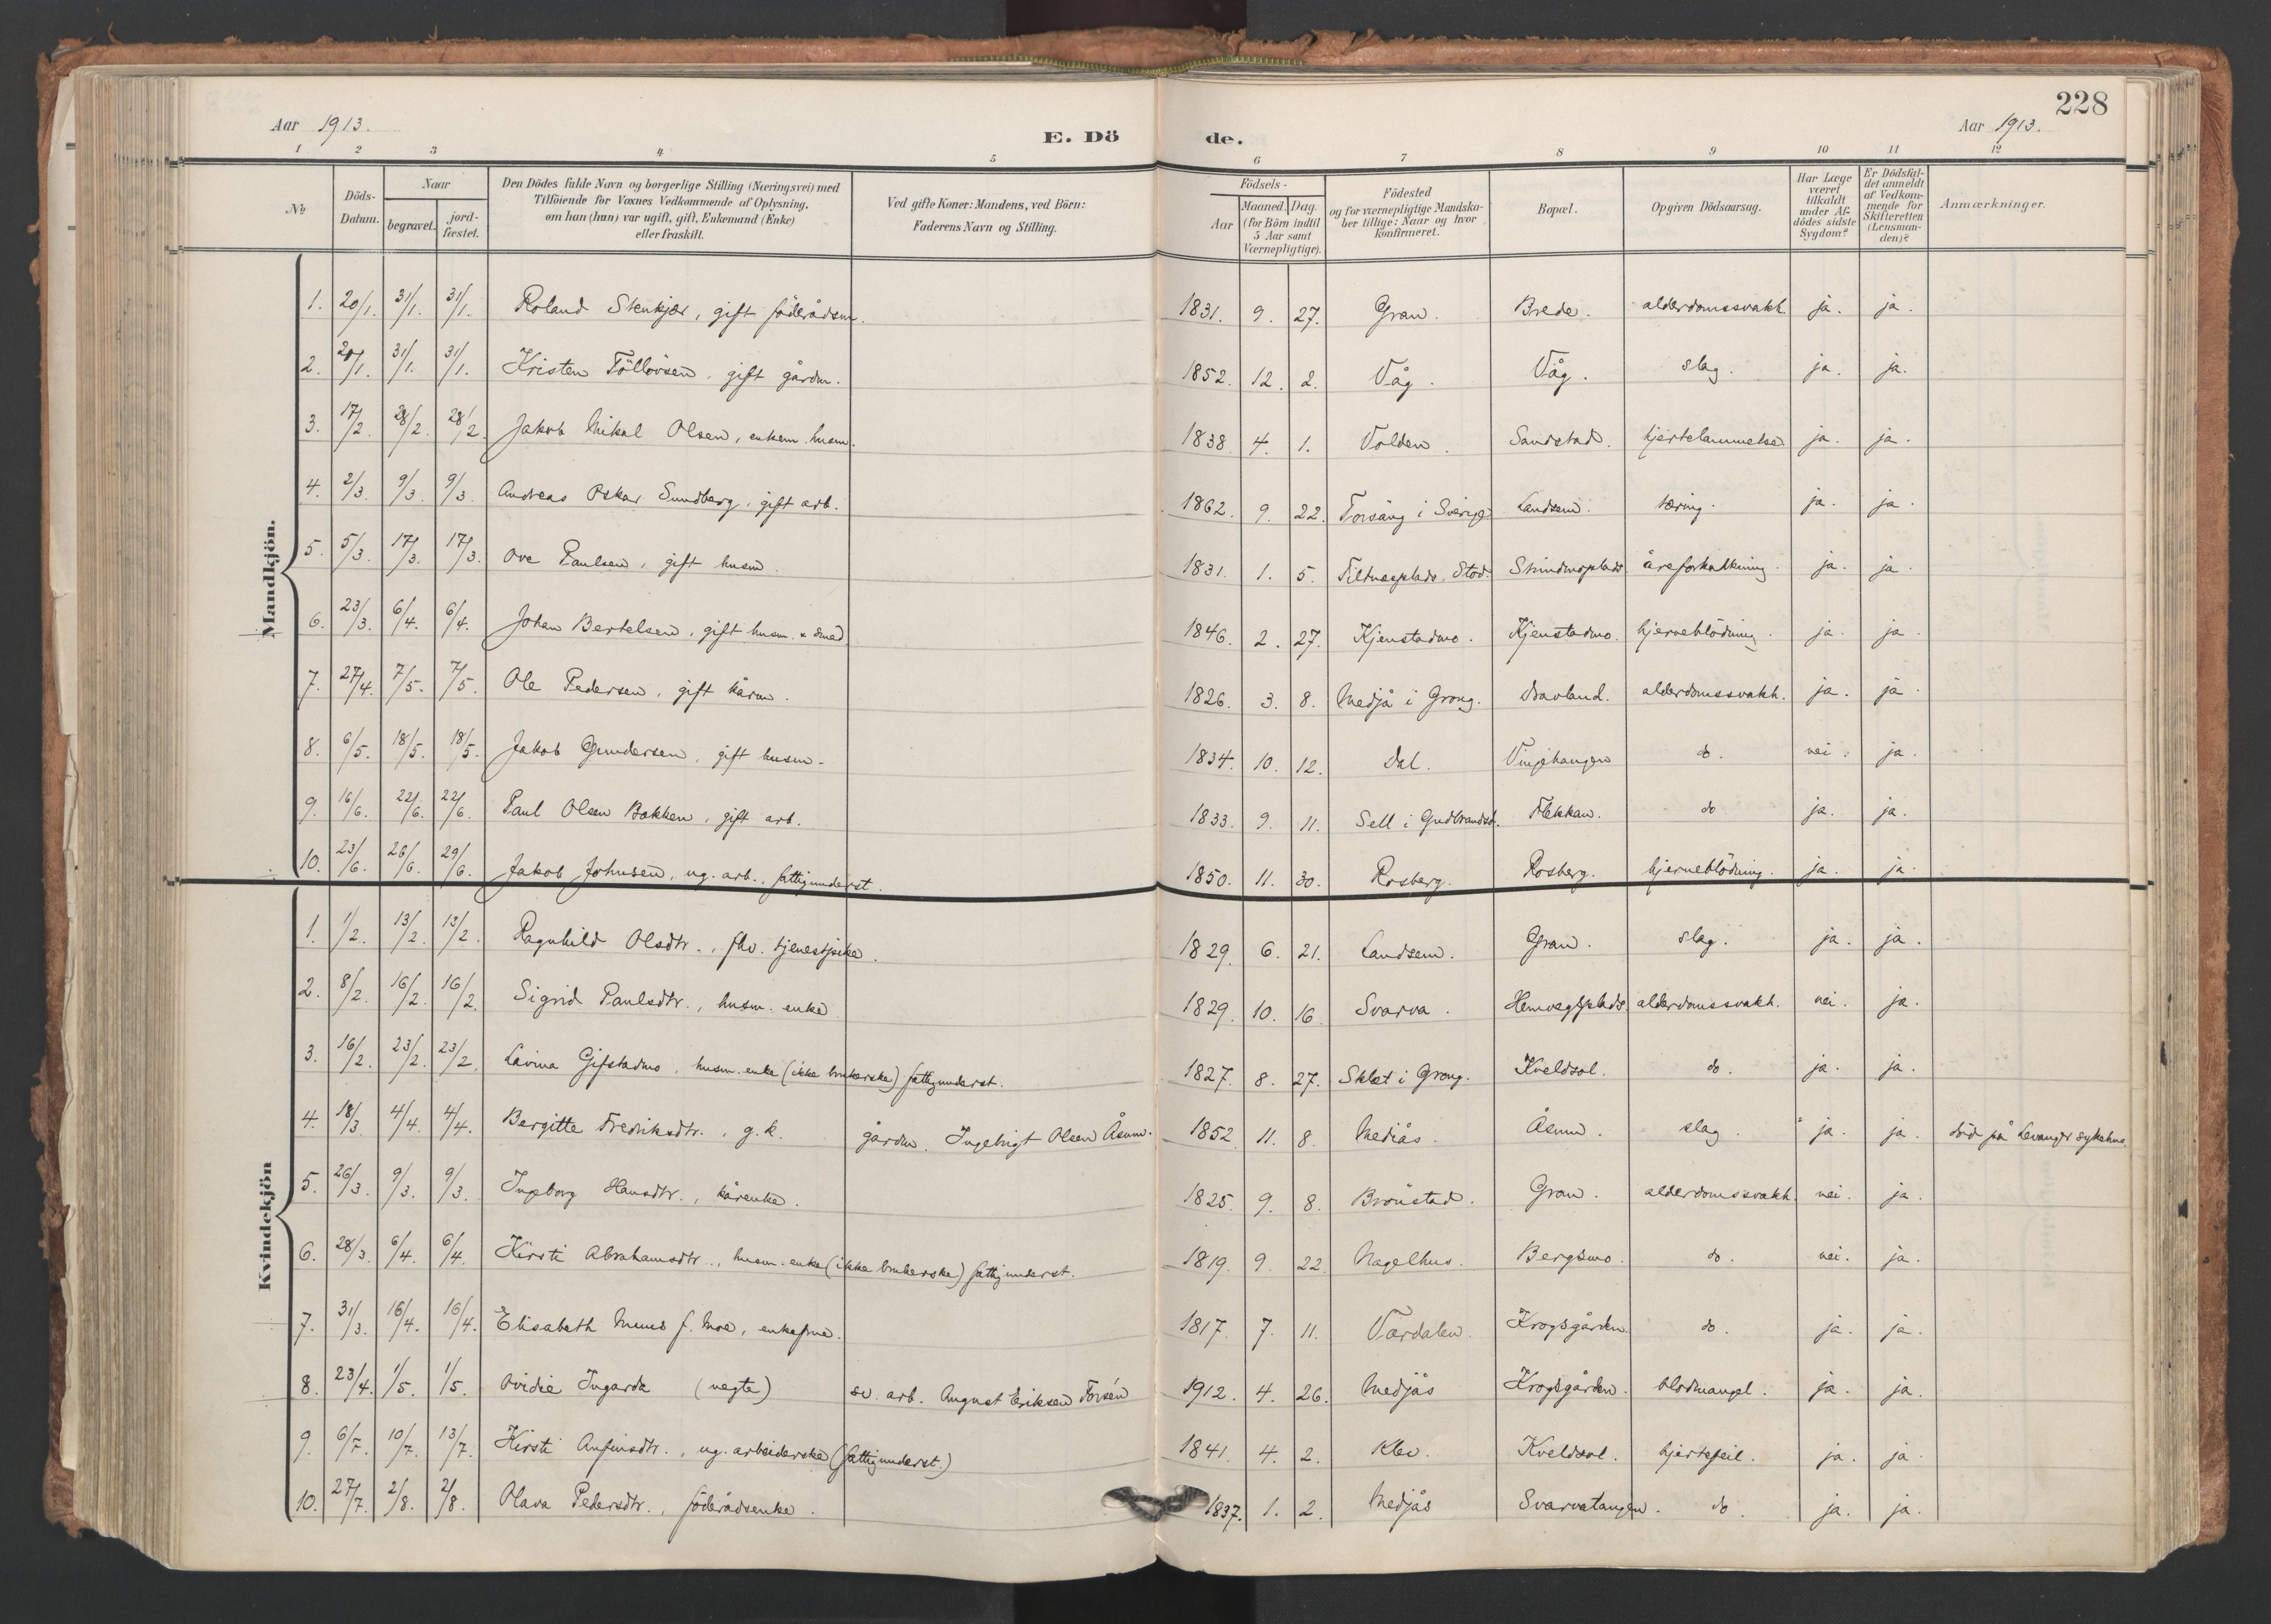 228
Aar 1913. E. Dö de. Aar 1913.
1 2 3 4 5 6 7 8 9 10 11 12
№ Döds-Datum. Naar begravet. jord-fæstet. Den Dödes fulde Navn og borgerlige Stilling (Næringsvei) med Tilföiende for Voxnes Vedkommende af Oplysning, om han (hun) var ugift, gift, Enkemand (Enke) eller fraskilt. Ved gifte Koner: Mandens, ved Börn: Faderens Navn og Stilling. Födsels- Aar Maaned. Dag. (for Börn indtil 5 Aar samt Værnepligtige). Födested og for værnepligtige Mandskaber tillige: Naar og hvor konfirmeret. Bopæl. Opgiven Dödsaarsag. Har Læge været tilkaldt under Afdödes sidste Sygdom? Er Dödsfaldet anmeldt af Vedkommende for Skifteretten (Lensmanden)? Anmærkninger.
Mandkjön.
1. 20/1. 31/1. 31/1. Roland Stenkjær, gift föderådsm. 1831. 9. 27. Gran. Brede. alderdomssvakh. ja. ja.
2. 31/1. 31/1. Kristen Töllövsen, gift gårdm. 1852. 12. 2. Våg. Våg. slag. ja. ja.
3. 17/2. 28/2. 28/2. Jakob Mikal Olsen, enkem. husm. 1838. 4. 1. Volden. Sandstad. hjertelammelse ja. ja.
4. 2/3. 9/3. 9/3. Andreas Oskar Sundberg, gift arb. 1862. 9. 22. Torsång i Sverige Landsem. tæring. ja. ja.
5. 5/3. 17/3. 17/3. Ove Paulsen, gift husm. 1831. 1. 5. Tiltnesplads. Stod. Strindmoplads åreforkalkning. ja. ja.
6. 23/3. 6/4. 6/4. Johan Bertelsen, gift husm. & smed. 1846. 2. 27. Kjenstadmo. Kjenstadmo. hjerneblödning. ja. ja.
7. 27/4. 7/5. 7/5. Ole Pedersen, gift kårm. 1826. 3. 8. Medjå i Grong. Davland. alderdomssvakh. ja. ja.
8. 6/5. 18/5. 18/5. Jakob Gundersen, gift husm. 1834. 10. 12. Dal. Vinjehaugen do. nei. ja.
9. 16/6. 22/6. 22/6. Paul Olsen Bakken, gift arb. 1833. 9. 11. Sell i Gudbrandsd. Flekkan. do ja. ja.
10. 23/6. 26/6. 29/6. Jakob Johnsen, ug. arb., fattigunderst. 1850. 11. 30. Rosberg. Rosberg. hjerneblödning. ja. ja.
Kvindekjön
1. 1/2. 13/2. 13/2. Ragnhild Olsdtr., fhv. tjenestpike. 1829. 6. 21. Landsem. Gran. slag. ja. ja.
2. 8/2. 16/2. 16/2. Sigrid Paulsdtr., husm. enke 1829. 10. 16. Svarva. alderdomssvakh. nei. ja.
3. 16/2. 23/2. 23/2. Lavina Gifstadmo, husm. enke (ikke brukerske) fattigunderst. 1827. 8. 27. Sklet i Grong. Kveldsol. do. ja. ja.
4. 18/3. 4/4. 4/4. Bergitte Fredriksdtr., g. k. gårdm. Ingebrigt Olsen Åsum. 1852 11. 8. Mediås. Åsum. slag. ja. ja. död på Levanger sykehus.
5. 26/3. 9/3. 9/3. Ingeborg Hansdtr., kårenke. 1825. 9. 8. Brönstad. Gran. alderdomssvakh. nei. ja.
6. 28/3. 6/4. 6/4. Kirsti Abrahamsdtr., husm. enke (ikke brukerske) fattigunderst. 1819. 9. 22. Nagelhus. Bergsmo. do. nei. ja.
7. 31/3. 16/4. 16/4. Elisabeth Muus f. Moe, enkefrue. 1817. 7. 11. Værdalen. Krogsgården. do. ja. ja.
8. 23/4. 1/5. 1/5. Ovidie Ingarda (uegte) sv. arb. August Eriksen Forsén 1912. 4. 26. Medjås Krogsgården. blodmangel. ja. ja.
9. 6/7. 10/7. 13/7. Kirsti Anfinsdtr., ug. arbeiderske (fattigunderst.) 1841. 4. 2. Klev. Kveldsol. hjertefeil. ja. ja.
10. 27/7. 2/8. 2/8. Olava Pedersdtr., föderådsenke. 1837. 1. 2. Medjås Svarvatangen. do. ja. ja.